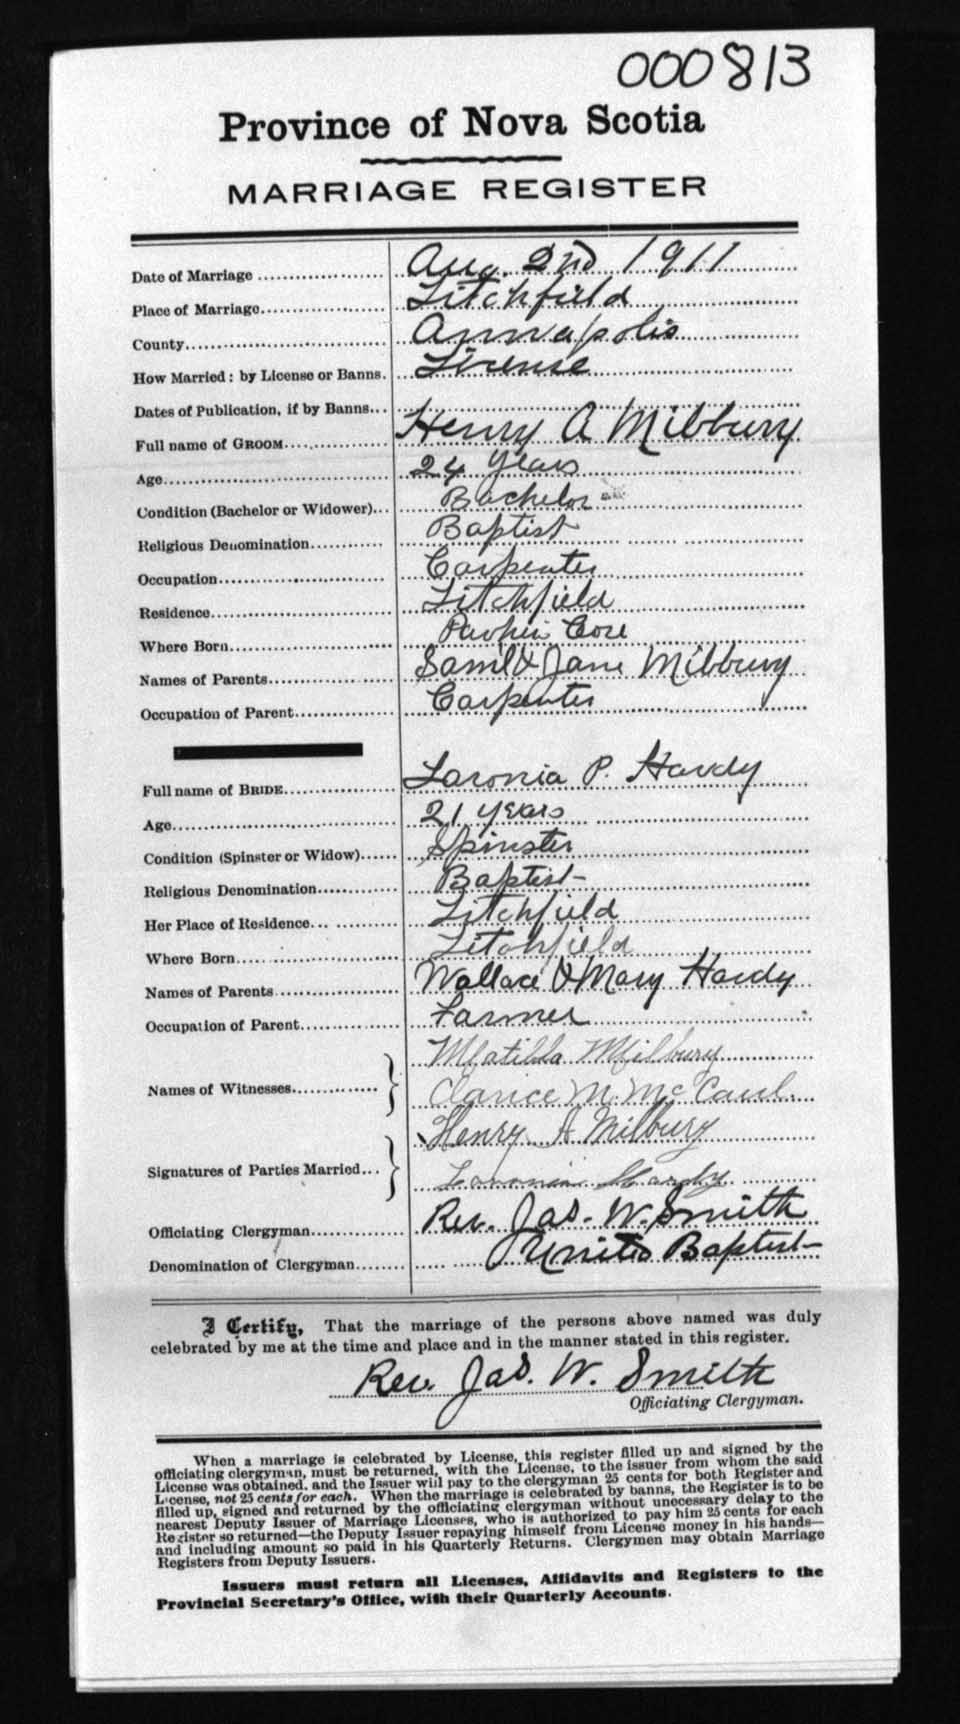 000813
Province of Nova Scotia
MARRIAGE REGISTER
Date of Marriage Aug. 2nd 1911
Place of Marriage Litchfield
County Annapolis
How Married: by License or Banns. License
Dates of Publication, if by Banns
Full name of GROOM Henry A Milbury
Age 24 years
Condition (Bachelor or Widower) Bachelor
Religious Denomination Baptist
Occupation Carpenter
Residence Litchfield
Where Born Cove
Names of Parents Saml & Jane Milbury
Occupation of Parent Carpenter
Full name of BRIDE Laronia P. Hardy
Age 21 years
Condition (Spinster or Widow) Spinster
Religious Denomination Baptist
Her Place of Residence Litchfield
Where Born Litchfield
Names of Parents Wallace & Mary Hardy
Occupation of Parent Farmer
Names of Witnesses Matilda Milbury
Clarice M. McCaul.
Signatures of Parties Married Henry A Milbury
Laronia Hardy
Officiating Clergyman Rev. Jas. W. Smith
Denomination of Clergyman United Baptist
I Certify, That the marriage of the persons above named was duly
celebrated by me at the time and place and in the manner stated in this register.
Rev. Jas. W. Smith
Officiating Clergyman.
When a marriage is celebrated by License, this register filled up and signed by the
officiating clergyman, must be returned, with the License, to the issuer from whom the said
License was obtained, and the Issuer will pay to the clergyman 25 cents for both Register and
License, not 25 cents for each. When the marriage is celebrated by banns, the Register is to be
filled up, signed and returned by the officiating clergyman without unecessary delay to the
nearest Deputy Issuer of Marriage Licenses, who is authorized to pay him 25 cents for each
Register so returned—the Deputy Issuer repaying himself from License money in his hands—
and including amount so paid in his Quarterly Returns. Clergymen may obtain Marriage
Registers from Deputy Issuers.
Issuers must return all Licenses, Affidavits and Registers to the
Provincial Secretary's Office, with their Quarterly Accounts.